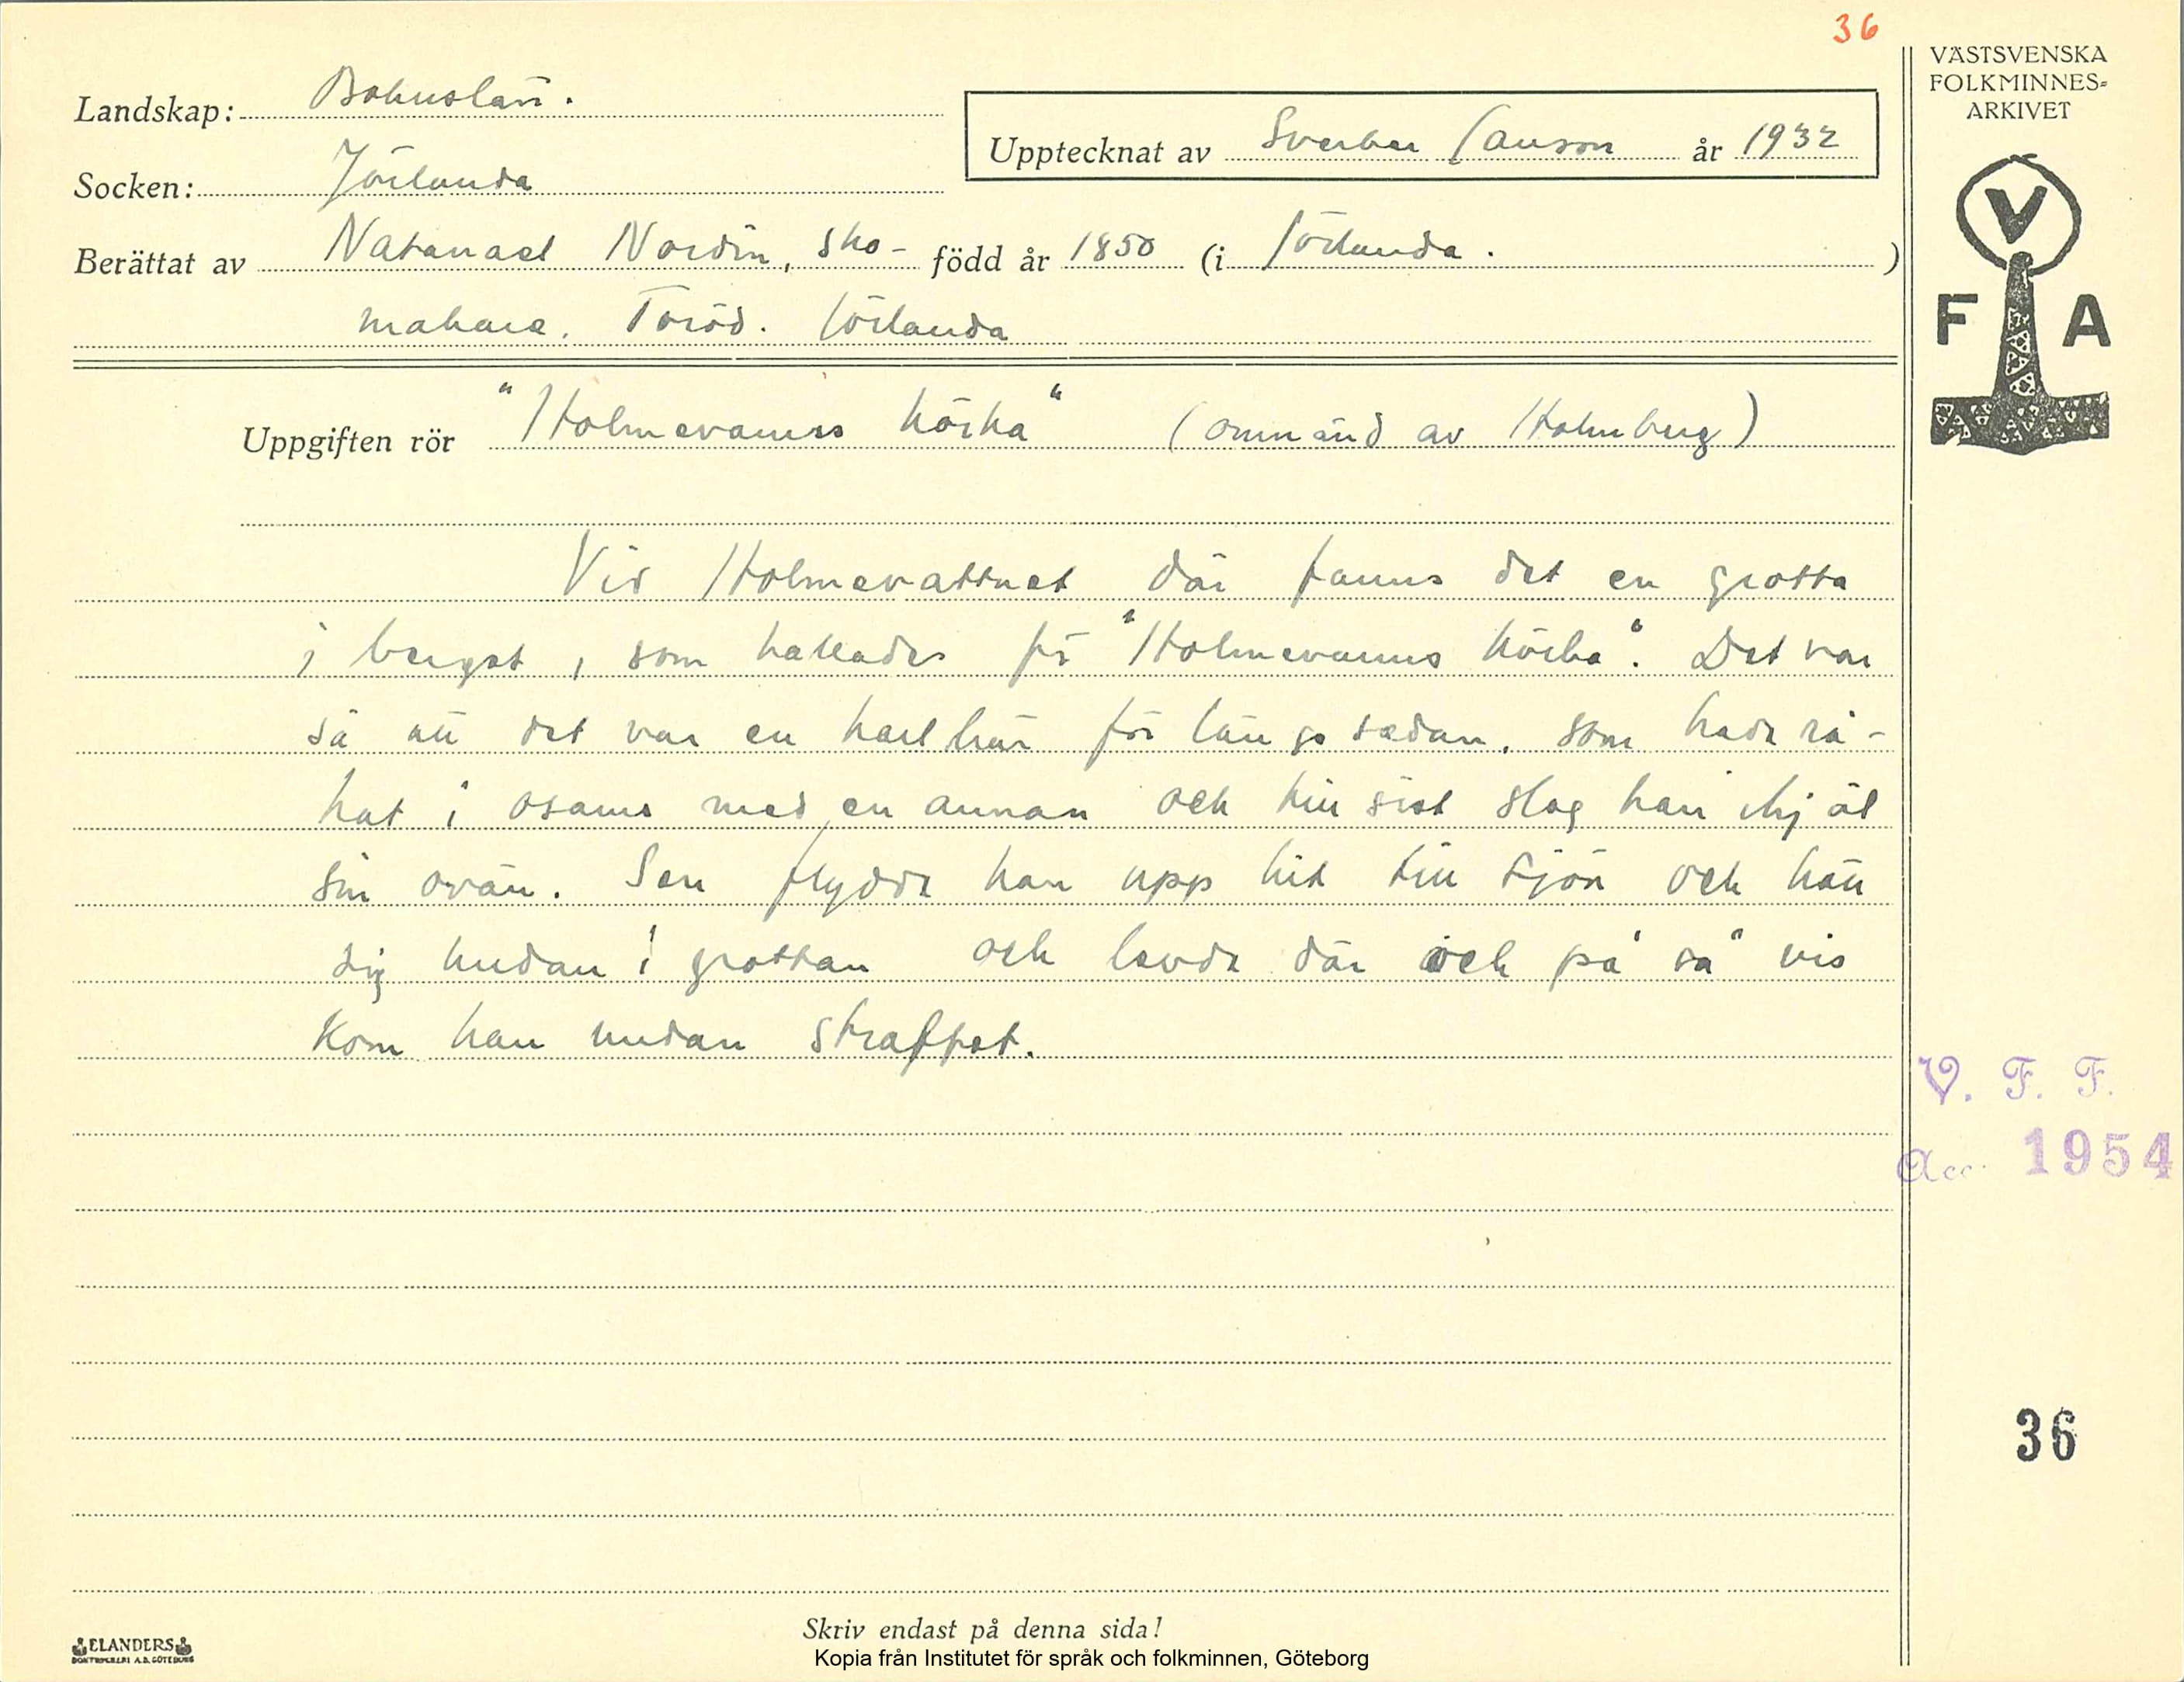 36
VÄSTSVENSKA
FOLKMINNES=
ARKIVET
Landskap: Bohuslän.
Upptecknat av Sverker Janson år 1932
Socken: Jörlanda
Berättat av Natanael Nordin, sko- född år 1850 (i Jörlanda. )
makare. Toröd. Jörlanda
V
F A
Uppgiften rör "Holmevanns körka" (omnänd av Holmberg)
Vid Holmevattnet där fanns det en grotta
i berget, som kallades för "Holmevanns körka". Det var
så att det var en karl här för länge sedan, som hade rå-
kat i osams med en annan och till sist slog han ihjäl
sin ovän. Sen flydde han upp hit till sjön och höll
sig undan i grottan och levde där och på så vis
kom han undan straffet.
V. F. F.
Acc. 1954
36
Skriv endast på denna sida!
ELANDERS
BOKTRYCKERI A.B. GÖTEBORG
Kopia från Institutet för språk och folkminnen, Göteborg